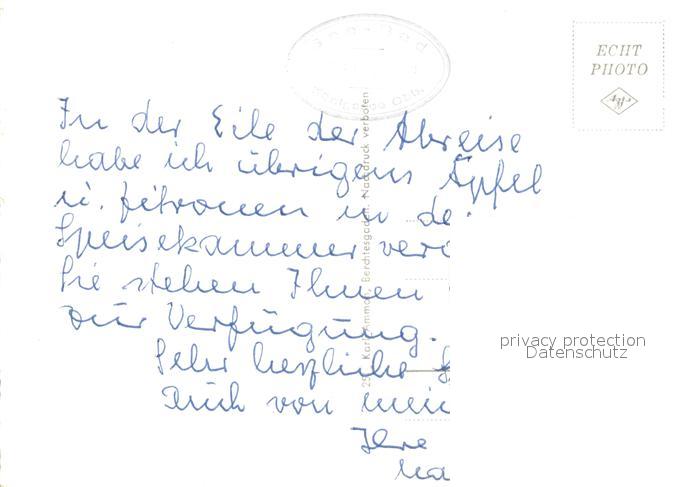 See-Bad
ECHT
PHOTO
Agfa
In der Eile der Abreise
habe ich übrigens Äpfel
u. Zitronen in de
Speisekammer ver
Sie stehen Ihnen
zur Verfügung.
Sehr herzliche G
Auch von mei
Ihre
Ma
Karl Ammon, Berchtesgaden. Nachdruck verboten
privacy protection
Datenschutz